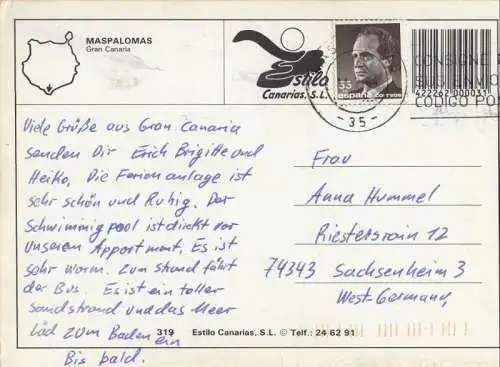 MASPALOMAS
Gran Canaria
Estilo
Canarias, S.L.
35
españa
-35-
422262 000031
CONSIGNE
SUS ENVI
CODIGO PO
Viele Grüße aus Gran Canaria
senden Dir Erich Brigitte und
Heiko, Die Ferienanlage ist
sehr schön und Ruhig. Der
Schwimmig pool ist direkt vor
unseren Appartment, Es ist
sehr warm. Zum Strand fährt
der Bus. Es ist ein toller
Sandstrand und das Meer
läd zum Baden ein
Bis bald.
Frau
Anna Hummel
Riestersrain 12
74343 Sachsenheim 3
West-Germany
319 Estilo Canarias, S.L. © Telf.: 24 62 91